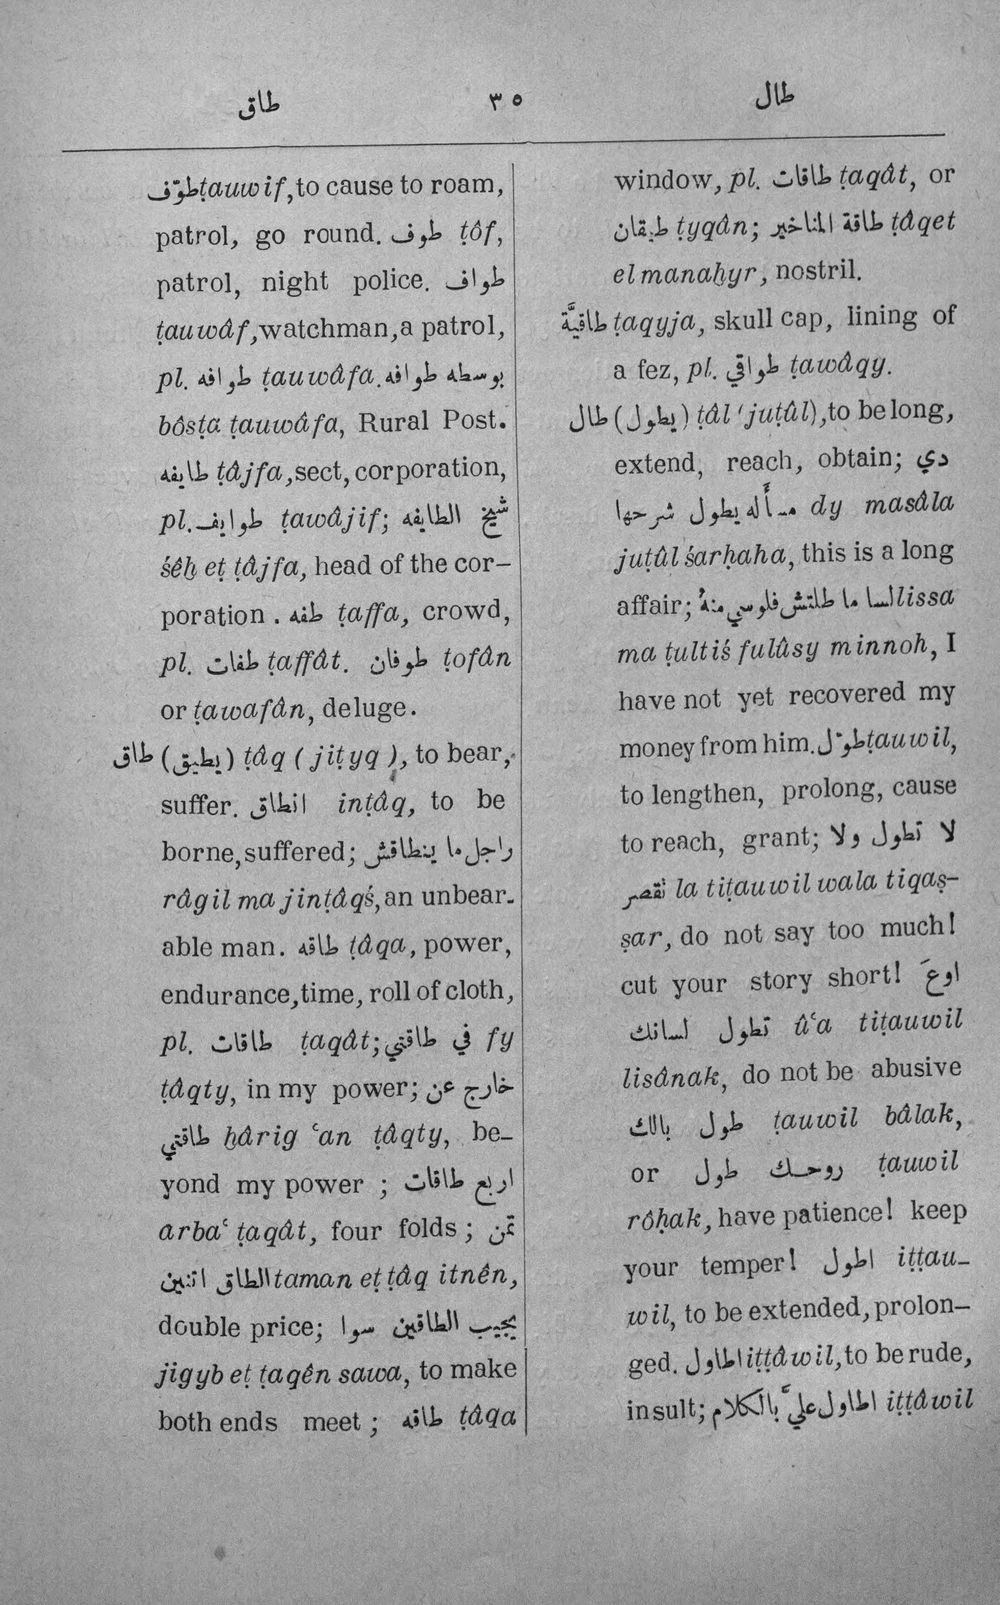 طاق ٣٥ طال
طوّف ṭauwif, to cause to roam,
patrol, go round. طوف ṭôf,
patrol, night police. طواف
ṭauwâf, watchman, a patrol,
pl. طوافه ṭauwâfa. بوسطه طوافه
bôsṭa ṭauwâfa, Rural Post.
طايفه ṭâjfa, sect, corporation,
pl. طوايف ṭawâjif; شيخ الطايفه
śêḫ eṭ ṭâjfa, head of the cor-
poration. طفه ṭaffa, crowd,
pl. طفات ṭaffât. طوفان ṭofân
or ṭawafân, deluge.
طاق (يطيق) ṭâq (jiṭyq), to bear,
suffer. انطاق inṭâq, to be
borne, suffered; راجل ما ينطاقش
râgil ma jinṭâqś, an unbear-
able man. طاقه ṭâqa, power,
endurance, time, roll of cloth,
pl. طاقات ṭaqât; في طاقتي fy
ṭâqty, in my power; خارج عن
طاقتي ḫârig ʿan ṭâqty, be-
yond my power; اربع طاقات
arbaʿ ṭaqât, four folds; تمن
الطاق اتنين taman eṭ ṭâq itnên,
double price; يجيب الطاقين سوا
jigyb eṭ ṭaqên sawa, to make
both ends meet; طاقه ṭâqa
window, pl. طاقات ṭaqât, or
طيقان ṭyqân; طاقة المناخير ṭâqet
elmanaḫyr, nostril.
طاقيَّة ṭaqyja, skull cap, lining of
a fez, pl. طواقي ṭawâqy.
طال (يطول) ṭâl (juṭûl), to be long,
extend, reach, obtain; دي
مسأله يطول شرحها dy masâla
juṭûl śarḥaha, this is a long
affair; لسا ما طلتش فلوسي منهُ lissa
ma ṭultiś fulûsy minnoh, I
have not yet recovered my
money from him. طوّل ṭauwil,
to lengthen, prolong, cause
to reach, grant; لا تطول ولا
تقصر la tiṭauwil wala tiqaṣ-
ṣar, do not say too much!
cut your story short! اوعَ
تطول لسانك ûʿa tiṭauwil
lisânak, do not be abusive
طول بالك ṭauwil bâlak,
or طول روحك ṭauwil
rôḥak, have patience! keep
your temper! اطول iṭṭau-
wil, to be extended, prolon-
ged. اطاول iṭṭâwil, to be rude,
insult; اطاول عليَّ بالكلام iṭṭâwil